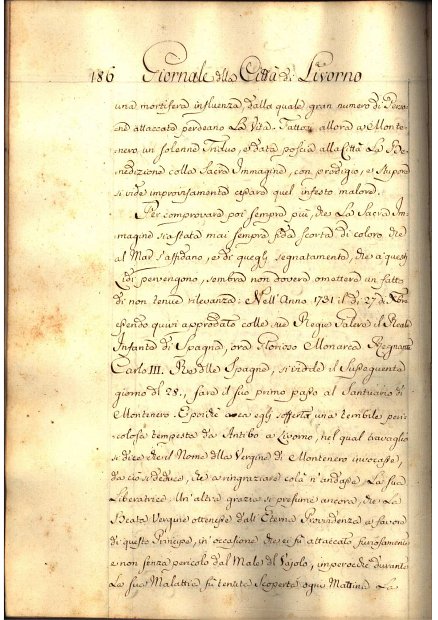 186 Giornale della Città di Livorno
una mortifera influenza, dalla quale gran numero di Perso-
ne attaccate perdeano La Vita. Fattosi allora a Monte-
nero un solenne Triduo, e data poscia alla Città La Be-
nedizione colla Sacra Immagine, con prodigio, e stupore
si vide improvisamente cessare quel infesto malore.
Per comprovare poi sempre più, che La Sacra Im-
magine sia stata mai sempre fida scorta di coloro, che
al Mar s'affidano, e di quegli segnatamente, che a questi
Lidi pervengono, sembra non doversi omettere un fatto
di non tenue rilevanza. Nell'Anno 1731 il dì 27 d. Xbre
essendo quivi approdato colle sue Regie Galere il Reale
Infante di Spagna, ora Glorioso Monarca Regnante
Carlo III. Re delle Spagne, si vidde il susseguente
giorno del 28., fare il suo primo passo al Santuario di
Montenero. E poichè avea egli sofferta una terribile peri-
colosa tempesta da Antibo a Livorno, nel qual travaglio
si dice che il Nome della Vergine di Montenero invocasse,
da ciò si deduce, che a ringraziare colà n'andasse La sua
Liberatrice. Un'altra grazia si presume ancora, che La
Beata Vergine ottenesse dall'Eterna Provvidenza a favore
di questo Principe, in occasione che ei fù attaccato furiosamente
e non senza pericolo dal Male del Vajolo, imperocchè durante
La sua Malattia fù tenuta scoperta ogni Mattina La